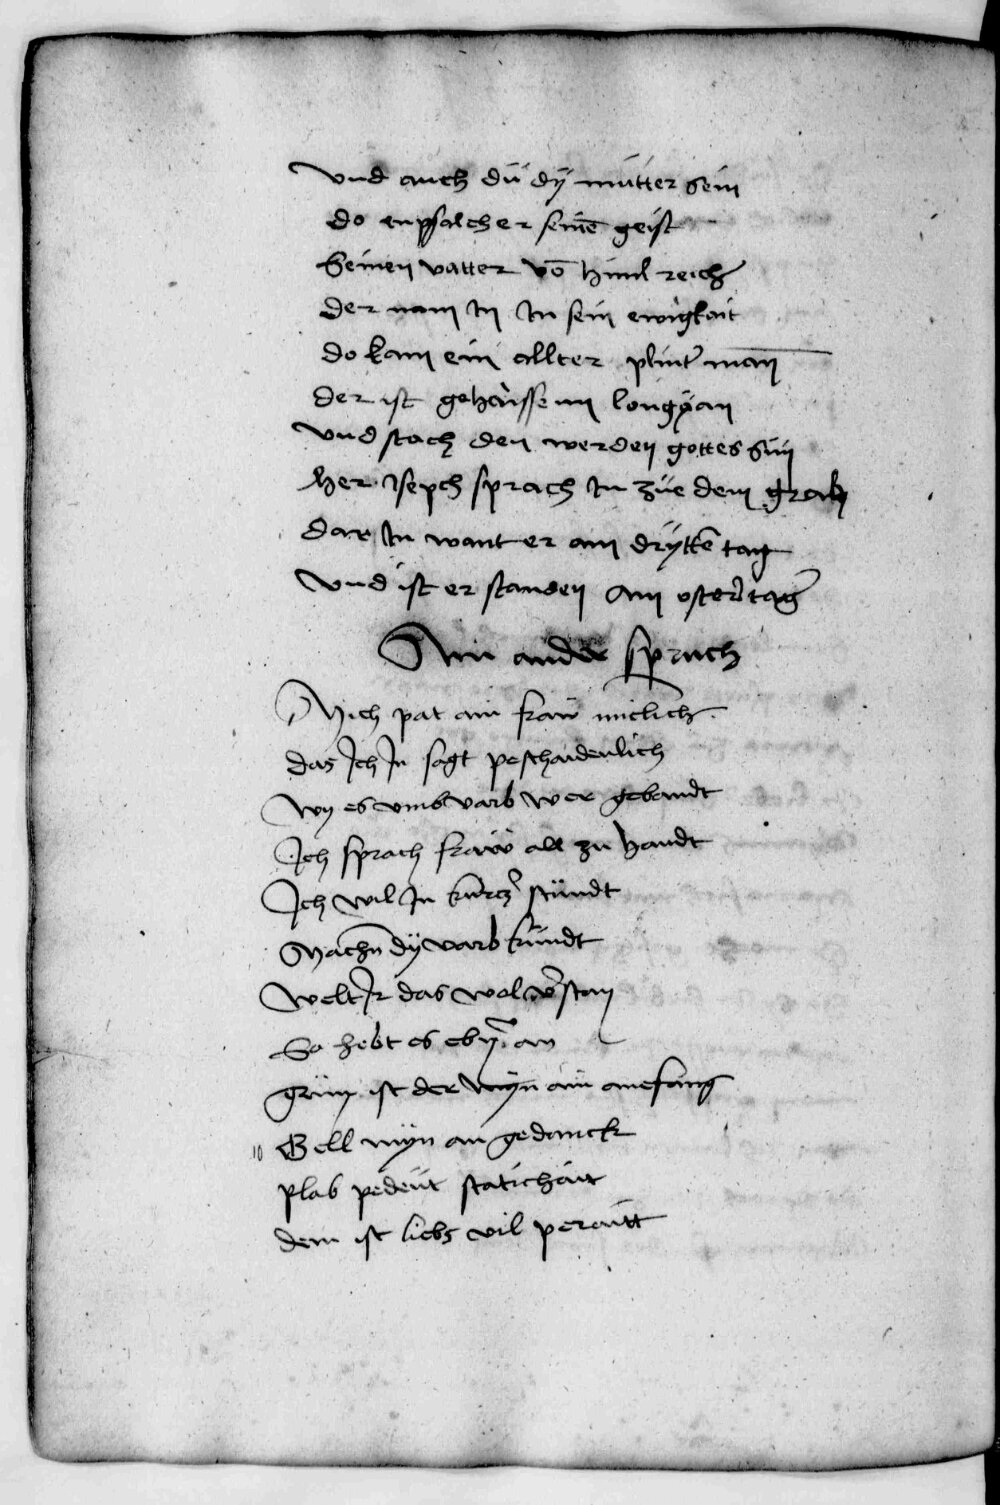 vnd auch dü dÿ mütter sein
do enpfalch er seinē geist
Seinen vatter vō himl reich
der nam in in sein ewigkait
do kam ein allter plinter man
der ist gehaissenn longÿan
vnd stach den werden gottes sün
her iseph sprach in züe dem grab
dar in want er am drÿttē tag
vnd ist er standen am ostertag
Ain ander spruch
Mich pat ain fraw mitlich
das Ich In sagt peschaidenlich
wy es vmb varb wer gebandt
Ich sprach fraw all zu handt
Ich wil In kurtz stündt
Machn dÿ varb kündt
welt Ir das wol verstan
So hebt es an
grün ist der mÿn ain anefang
Gell mÿn an gedanck
plab pedeüt statichait
dem ist liebs vil peraitt